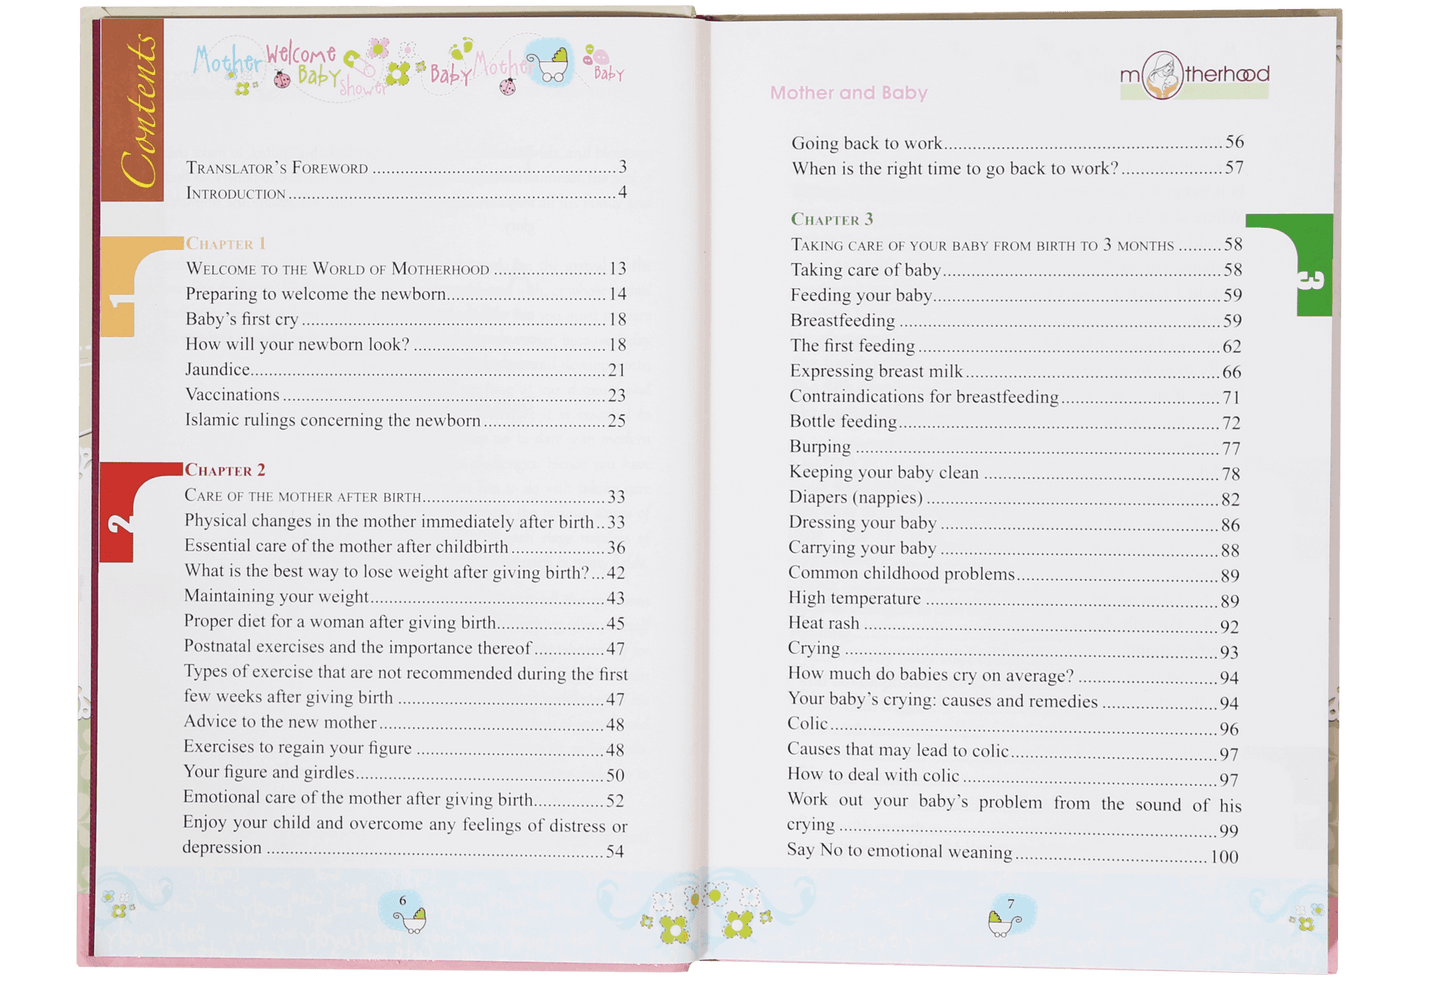 Contents
Mother Welcome Baby Shower Baby Mother Baby
TRANSLATOR'S FOREWORD ........ 3
INTRODUCTION ........ 4
1
CHAPTER 1
WELCOME TO THE WORLD OF MOTHERHOOD ........ 13
Preparing to welcome the newborn ........ 14
Baby's first cry ........ 18
How will your newborn look? ........ 18
Jaundice ........ 21
Vaccinations ........ 23
Islamic rulings concerning the newborn ........ 25
2
CHAPTER 2
CARE OF THE MOTHER AFTER BIRTH ........ 33
Physical changes in the mother immediately after birth .. 33
Essential care of the mother after childbirth ........ 36
What is the best way to lose weight after giving birth? ... 42
Maintaining your weight ........ 43
Proper diet for a woman after giving birth ........ 45
Postnatal exercises and the importance thereof ........ 47
Types of exercise that are not recommended during the first
few weeks after giving birth ........ 47
Advice to the new mother ........ 48
Exercises to regain your figure ........ 48
Your figure and girdles ........ 50
Emotional care of the mother after giving birth ........ 52
Enjoy your child and overcome any feelings of distress or
depression ........ 54
6
Mother and Baby
motherhood
Going back to work ........ 56
When is the right time to go back to work? ........ 57
3
CHAPTER 3
TAKING CARE OF YOUR BABY FROM BIRTH TO 3 MONTHS ........ 58
Taking care of baby ........ 58
Feeding your baby ........ 59
Breastfeeding ........ 59
The first feeding ........ 62
Expressing breast milk ........ 66
Contraindications for breastfeeding ........ 71
Bottle feeding ........ 72
Burping ........ 77
Keeping your baby clean ........ 78
Diapers (nappies) ........ 82
Dressing your baby ........ 86
Carrying your baby ........ 88
Common childhood problems ........ 89
High temperature ........ 89
Heat rash ........ 92
Crying ........ 93
How much do babies cry on average? ........ 94
Your baby's crying: causes and remedies ........ 94
Colic ........ 96
Causes that may lead to colic ........ 97
How to deal with colic ........ 97
Work out your baby's problem from the sound of his
crying ........ 99
Say No to emotional weaning ........ 100
7